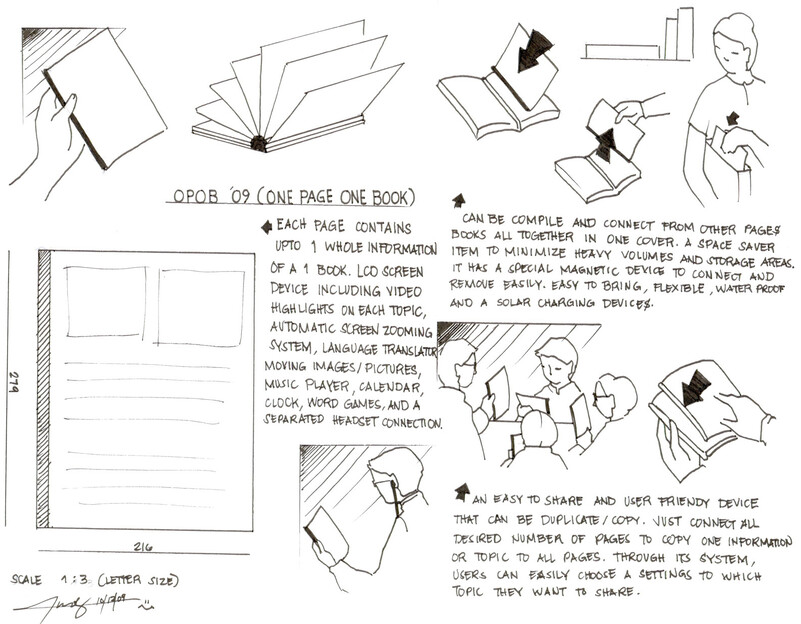 OPOB '09 (ONE PAGE ONE BOOK)
EACH PAGE CONTAINS
UPTO 1 WHOLE INFORMATION
OF A 1 BOOK. LCD SCREEN
DEVICE INCLUDING VIDEO
HIGHLIGHTS ON EACH TOPIC,
AUTOMATIC SCREEN ZOOMING
SYSTEM, LANGUAGE TRANSLATOR
MOVING IMAGES/PICTURES,
MUSIC PLAYER, CALENDAR,
CLOCK, WORD GAMES, AND A
SEPARATED HEADSET CONNECTION.
CAN BE COMPILE AND CONNECT FROM OTHER PAGES
BOOKS ALL TOGETHER IN ONE COVER. A SPACE SAVER
ITEM TO MINIMIZE HEAVY VOLUMES AND STORAGE AREAS.
IT HAS A SPECIAL MAGNETIC DEVICE TO CONNECT AND
REMOVE EASILY. EASY TO BRING, FLEXIBLE, WATER PROOF
AND A SOLAR CHARGING DEVICES.
AN EASY TO SHARE AND USER FRIENDY DEVICE
THAT CAN BE DUPLICATE/COPY. JUST CONNECT ALL
DESIRED NUMBER OF PAGES TO COPY ONE INFORMATION
OR TOPIC TO ALL PAGES. THROUGH ITS SYSTEM,
USERS CAN EASILY CHOOSE A SETTINGS TO WHICH
TOPIC THEY WANT TO SHARE.
279
216
SCALE 1:3 (LETTER SIZE)